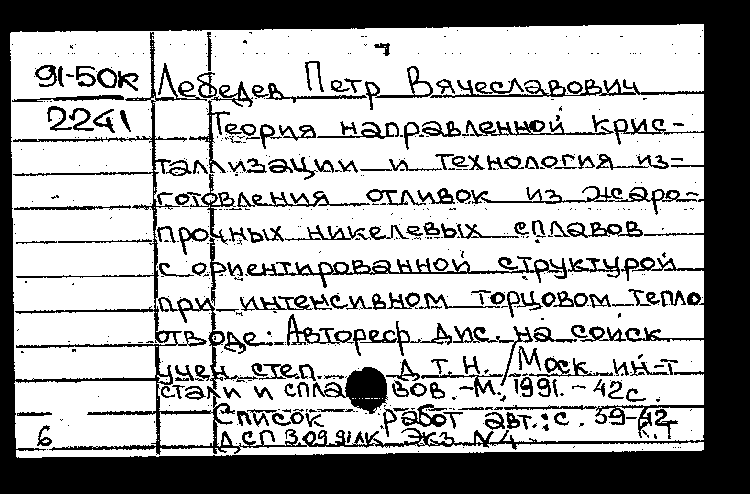 91-50к Лебедев, Петр Вячеславович
2241 Теория направленной крис-
таллизации и технология из-
готовления отливок из жаро-
прочных никелевых сплавов
с ориентированной структурой
при интенсивном торцовом тепло
отводе: Автореф. дис. на соиск
учен степ. Д.Т.Н. / Моск ин-т
стали и сплавов. -М., 1991. - 42с.
Список работ авт.: с. 39-42
6 ДСП 3.09.91 экз N4 К.Т